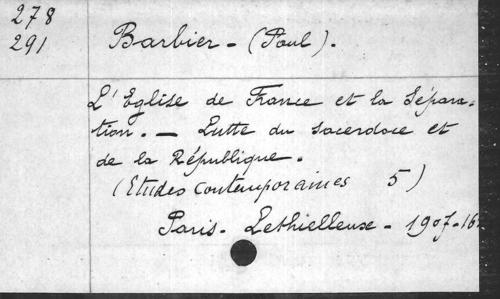 278
291
Barbier - (Paul).
L'Eglise de France et la Sépara-
tion. - Lutte du sacerdoce et
de la République.
(Etudes Contemporaines 5)
Paris - Lethielleux - 1907-16